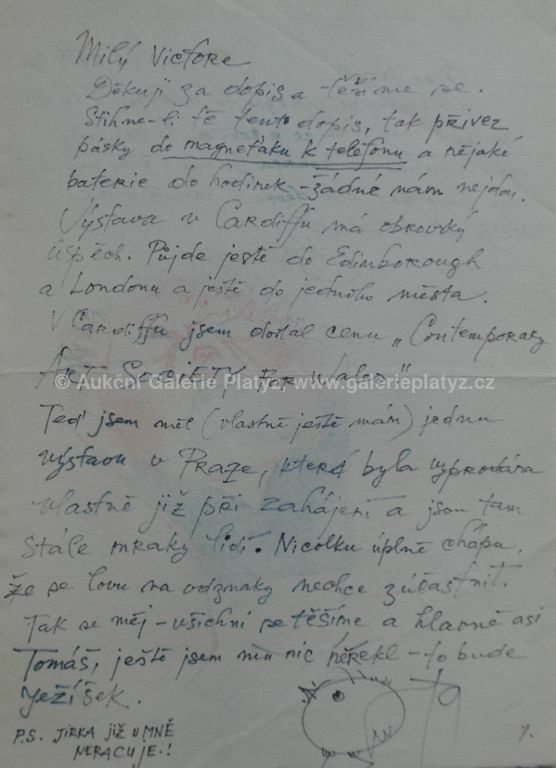 Milý Victore
Děkuji za dopis a těšíme se.
Stihne-li tě tento dopis, tak přivez
pásky do magneťáku k telefonu a nějaké
baterie do hodinek - žádné nám nejdou.
Výstava v Cardiffu má obrovský
úspěch. Půjde ještě do Edimborough
a Londonu a ještě do jednoho města.
V Cardiffu jsem dostal cenu „Contemporary
Art Society for Wales"
© Aukční Galerie Platýz, www.galerieplatyz.cz
Teď jsem měl (vlastně ještě mám) jednu
výstavu v Praze, která byla vyprodána
vlastně již při zahájení a jsou tam
stále mraky lidí. Nicolku úplně chápu,
že se lovu na odznaky nechce zúčastnit.
Tak se měj - všichni se těšíme a hlavně asi
Tomáš, ještě jsem mu nic neřekl - to bude
Ježíšek.
P.S. JIRKA JIŽ U MNĚ
NERACUJE.!